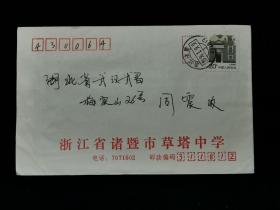 430064
湖北省武汉武昌
梅家山26号 周震收
浙江省诸暨市草塔中学
电话：7071602 邮政编码311812